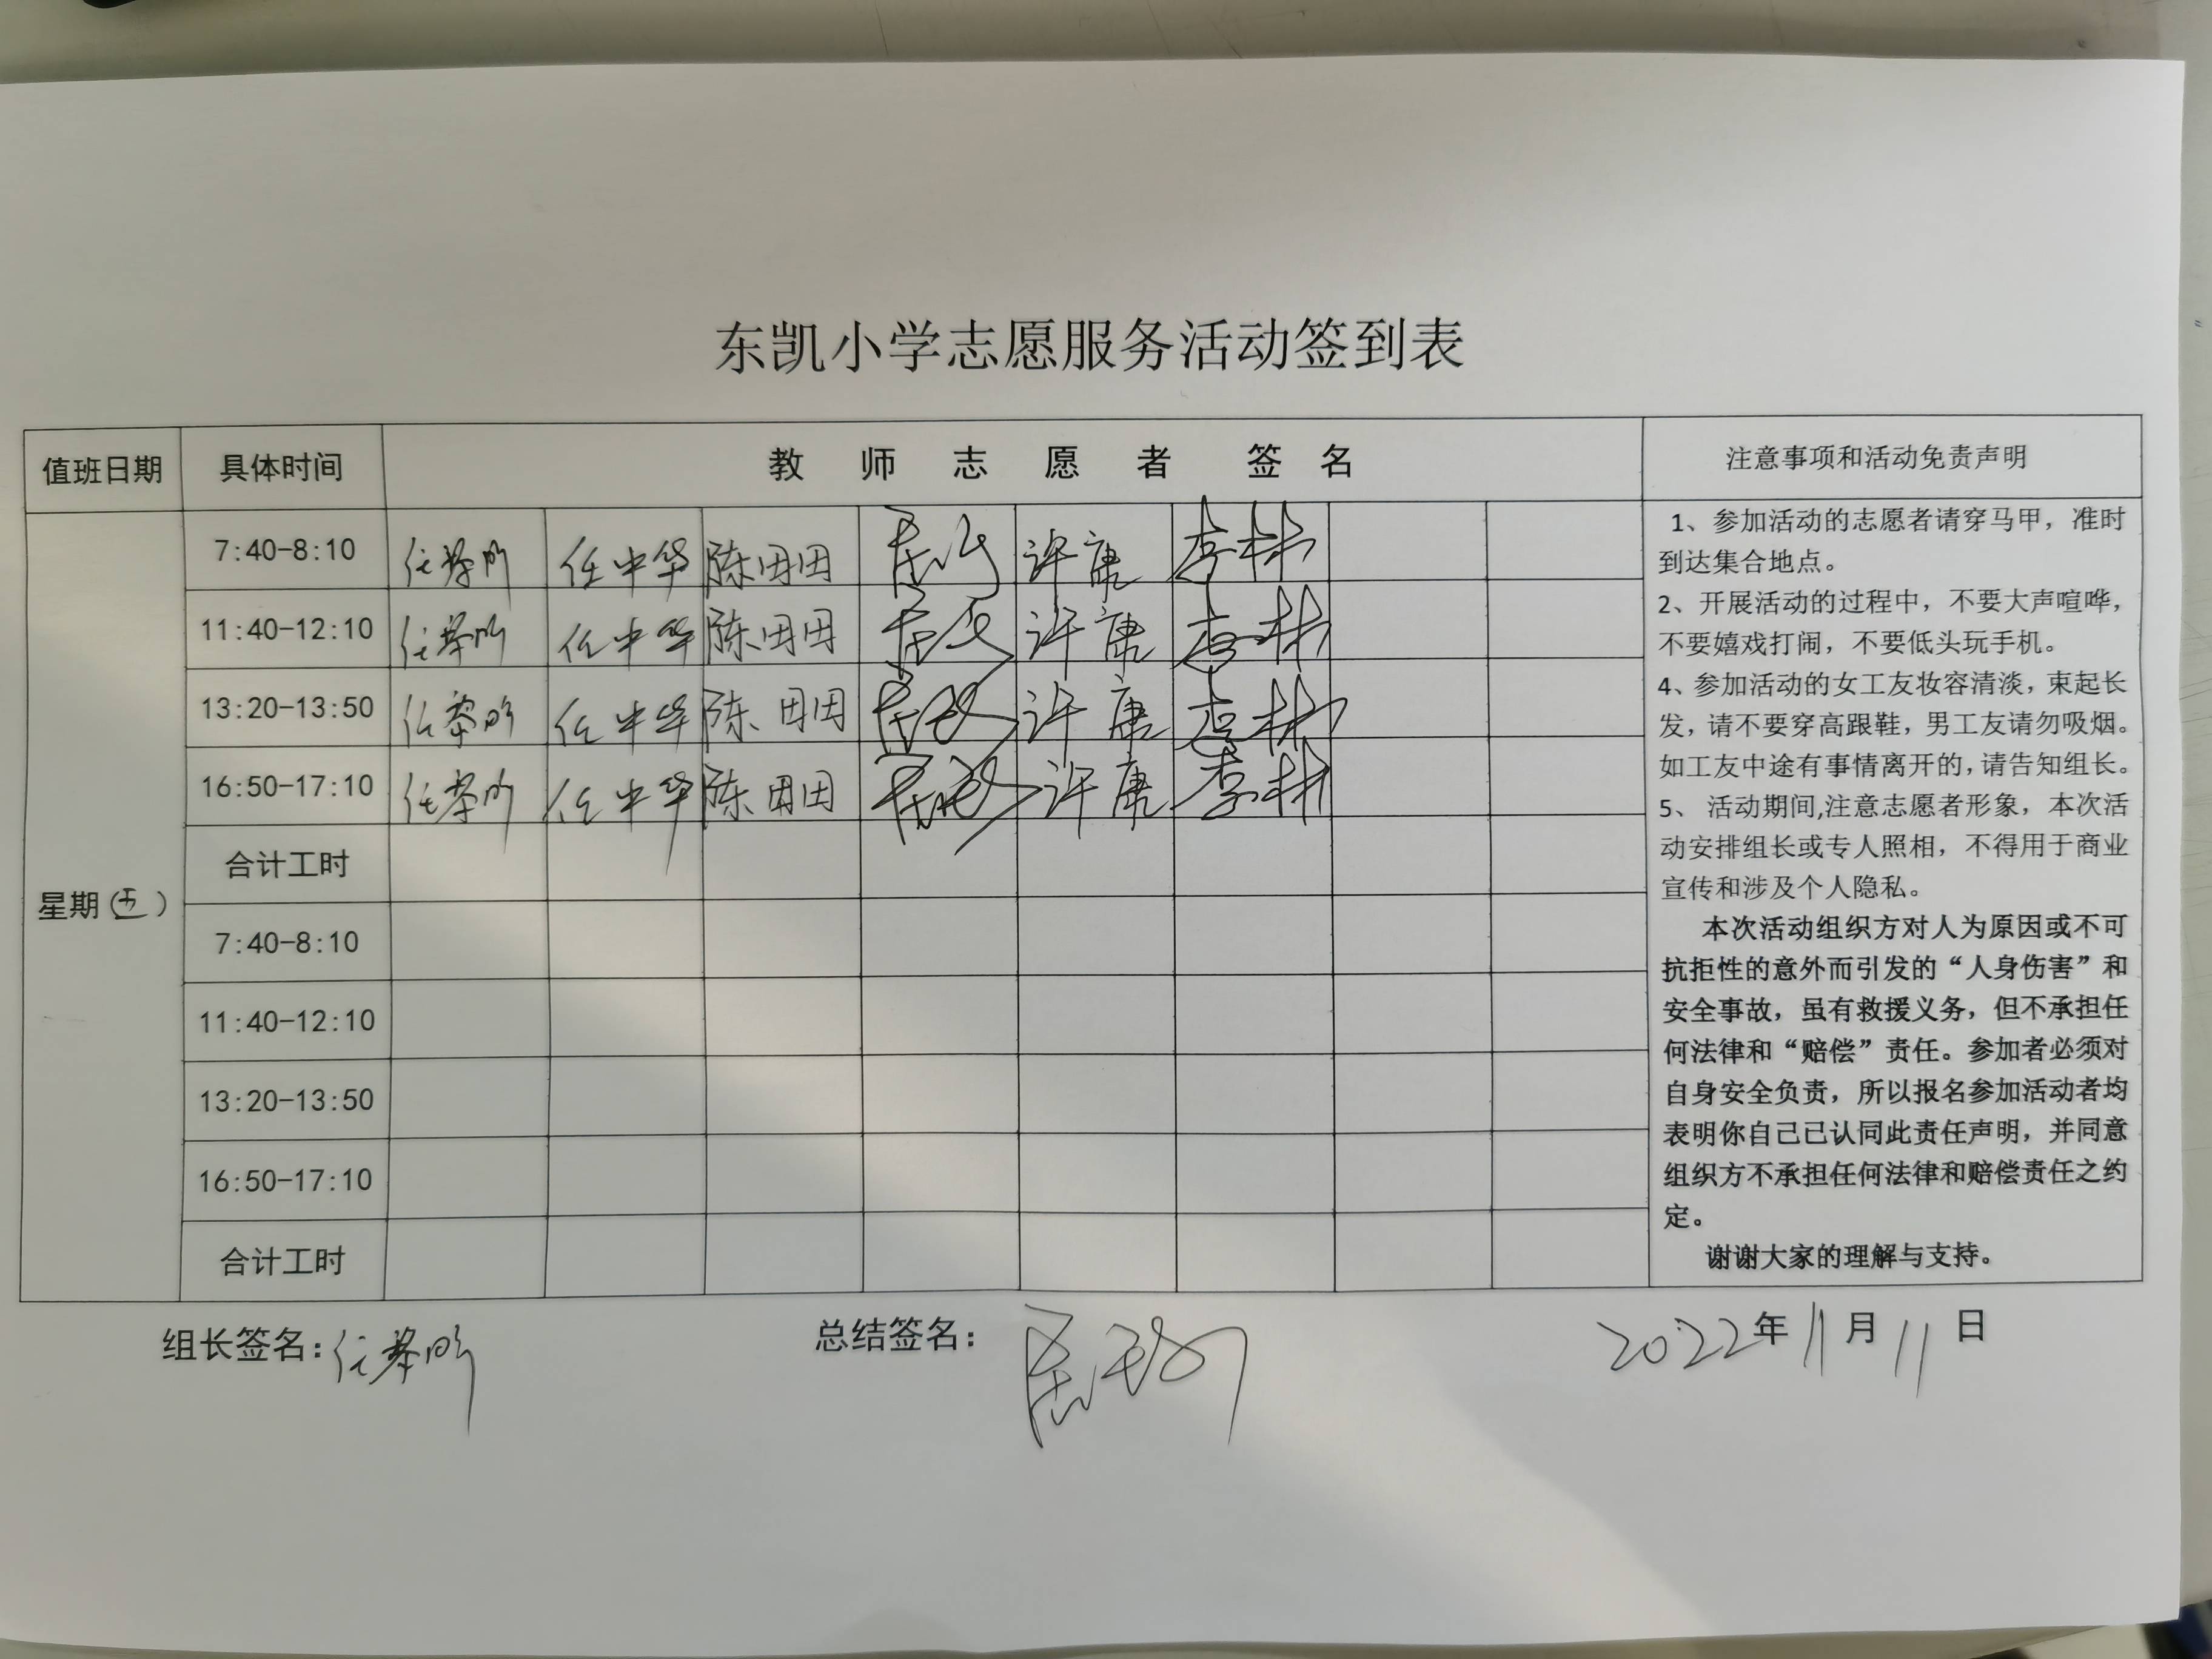 东凯小学志愿服务活动签到表
值班日期 具体时间 教师志愿者签名 注意事项和活动免责声明
星期(五)
7:40-8:10 任 任中华 陈田田 许唐 李彬
11:40-12:10 任 任中华 陈田田 许唐 李彬
13:20-13:50 任 任中华 陈田田 许唐 李彬
16:50-17:10 任 任中华 陈田田 许唐 李彬
合计工时
7:40-8:10
11:40-12:10
13:20-13:50
16:50-17:10
合计工时
1、参加活动的志愿者请穿马甲，准时
到达集合地点。
2、开展活动的过程中，不要大声喧哗，
不要嬉戏打闹，不要低头玩手机。
4、参加活动的女工友妆容清淡，束起长
发，请不要穿高跟鞋，男工友请勿吸烟。
如工友中途有事情离开的，请告知组长。
5、 活动期间,注意志愿者形象，本次活
动安排组长或专人照相，不得用于商业
宣传和涉及个人隐私。
本次活动组织方对人为原因或不可
抗拒性的意外而引发的“人身伤害”和
安全事故，虽有救援义务，但不承担任
何法律和“赔偿”责任。参加者必须对
自身安全负责，所以报名参加活动者均
表明你自己已认同此责任声明，并同意
组织方不承担任何法律和赔偿责任之约
定。
谢谢大家的理解与支持。
组长签名：任 总结签名： 2022年11月11日